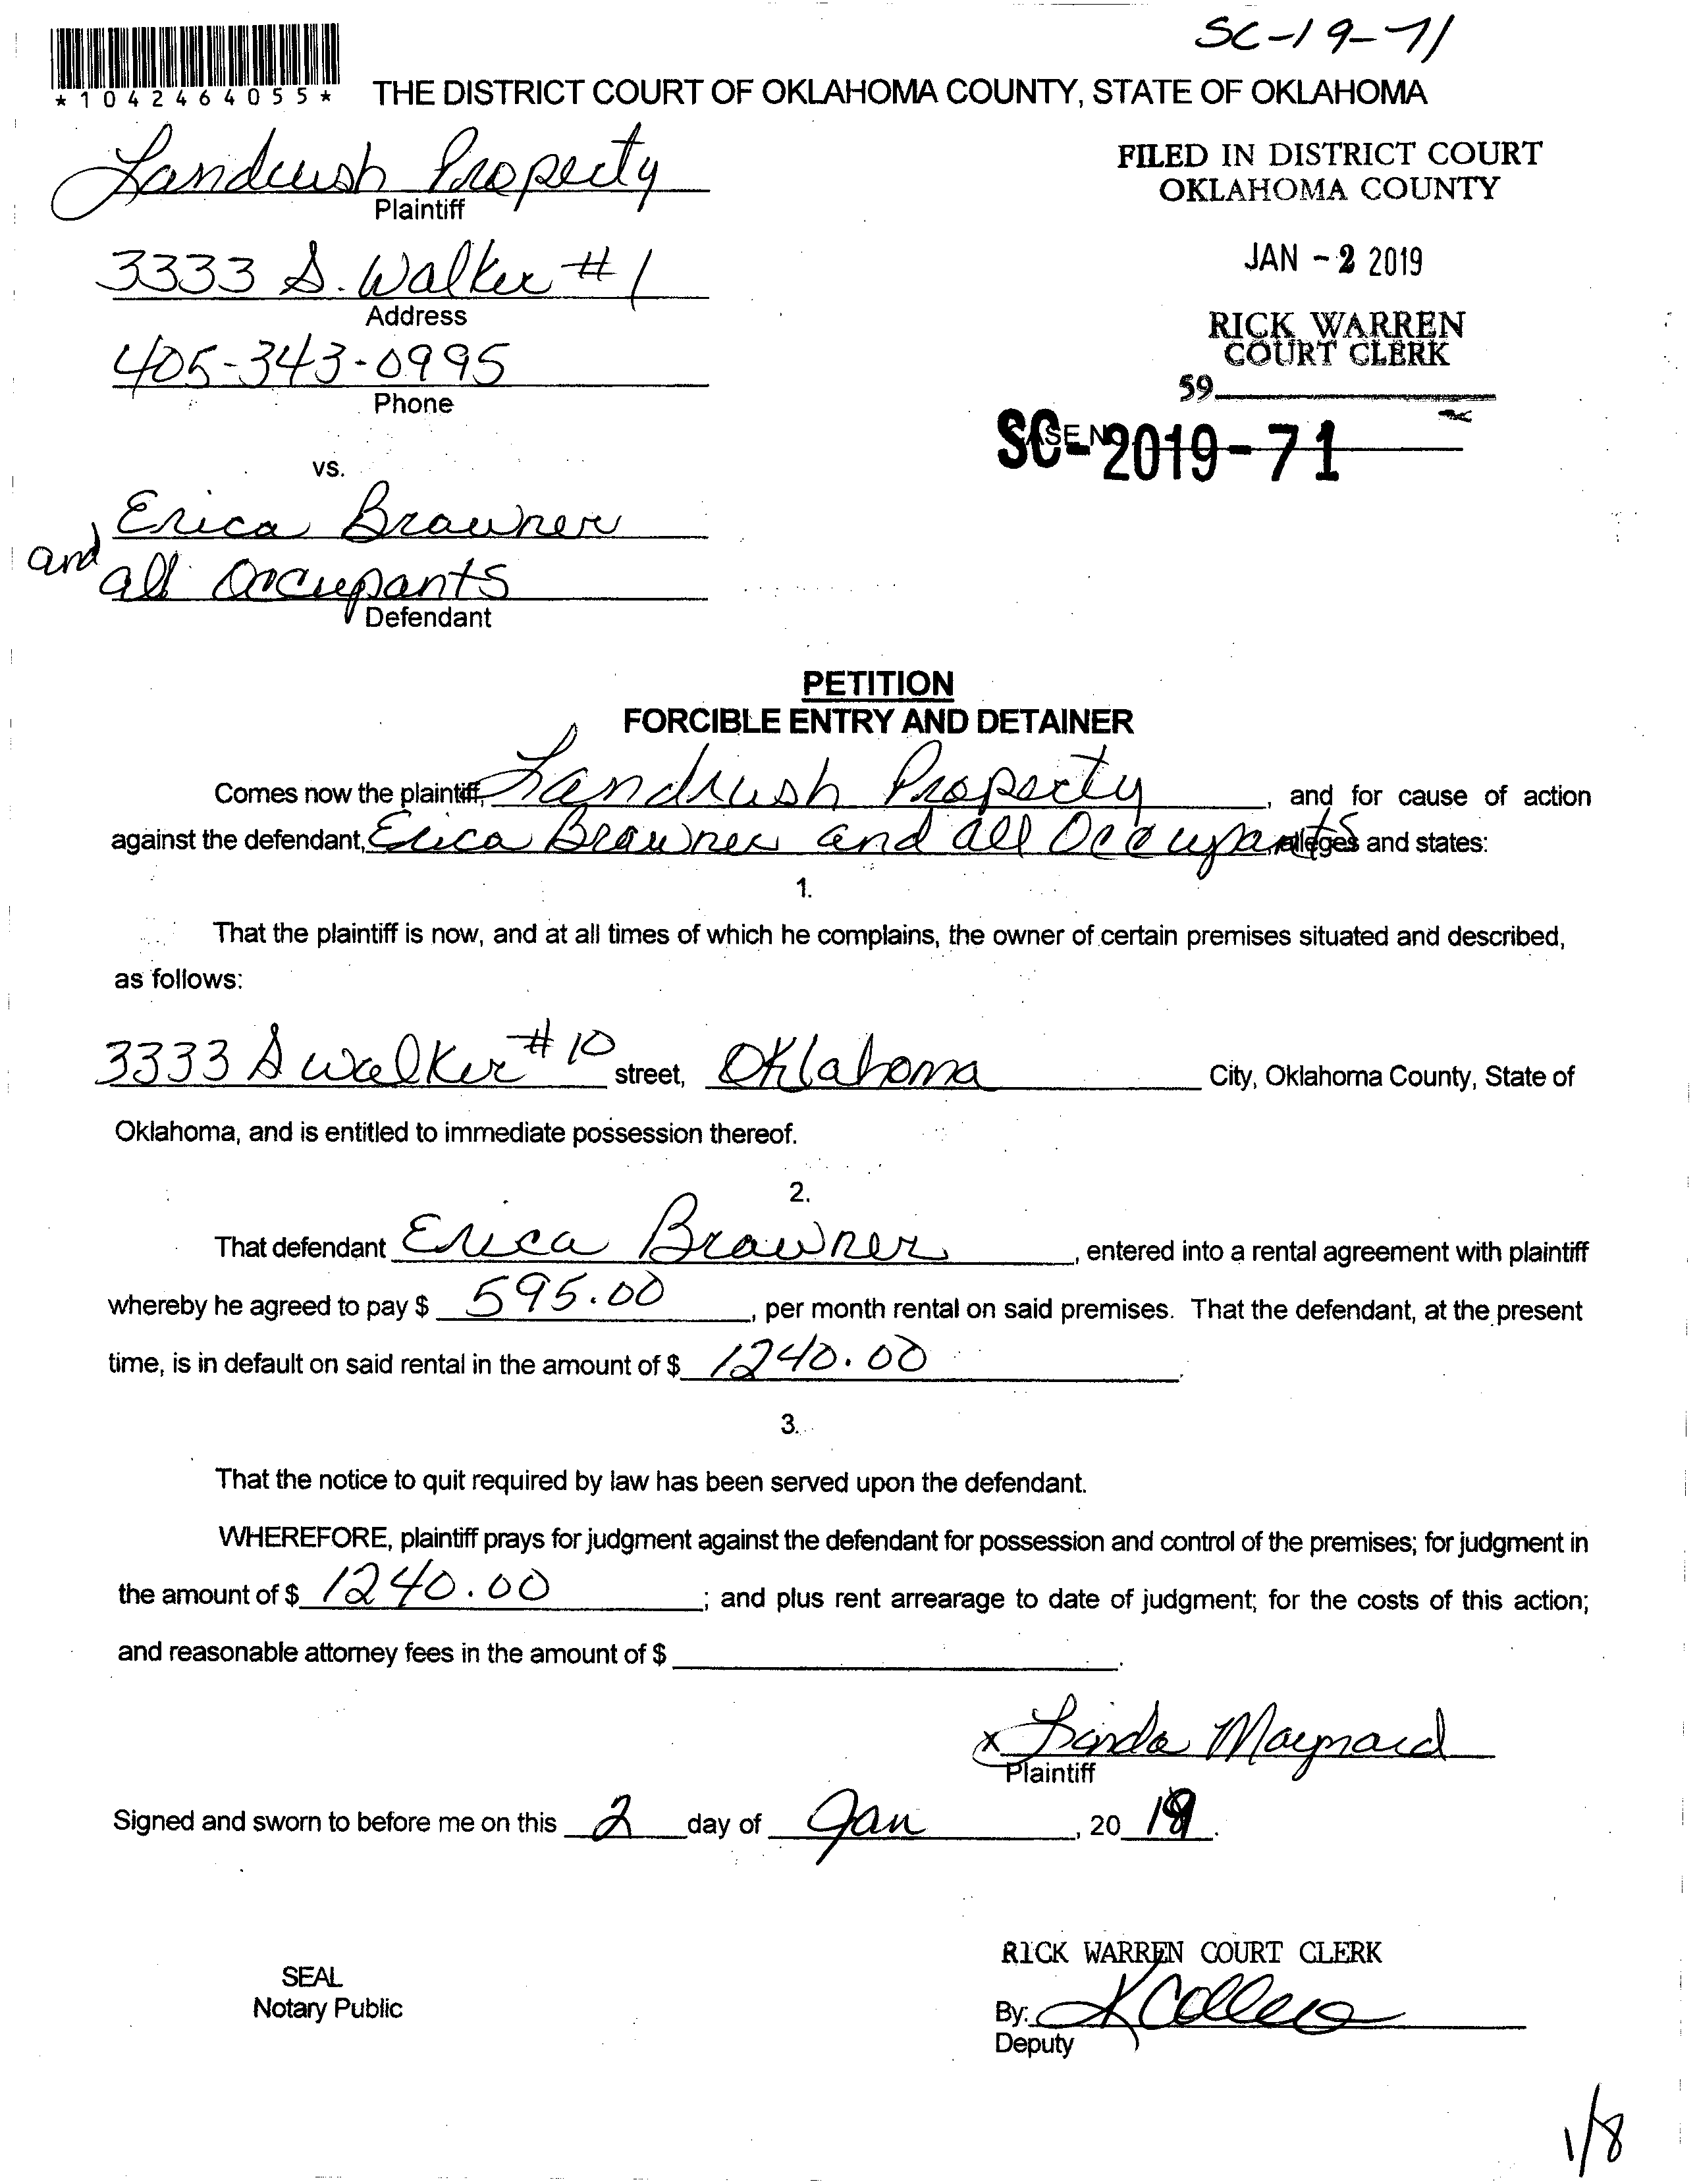 SC-19-71
*1042464055*
THE DISTRICT COURT OF OKLAHOMA COUNTY, STATE OF OKLAHOMA
Landrush Property
Plaintiff
FILED IN DISTRICT COURT
OKLAHOMA COUNTY
3333 S. Walker #1
Address
JAN - 2 2019
405-343-0995
Phone
RICK WARREN
COURT CLERK
59
SC-2019-71
vs.
Erica Brawner
and all Occupants
Defendant
PETITION
FORCIBLE ENTRY AND DETAINER
Comes now the plaintiff, Landrush Property, and for cause of action
against the defendant, Erica Brawner and all Occupants alleges and states:
1.
That the plaintiff is now, and at all times of which he complains, the owner of certain premises situated and described,
as follows:
3333 S Walker #10 street, Oklahoma City, Oklahoma County, State of
Oklahoma, and is entitled to immediate possession thereof.
2.
That defendant Erica Brawner, entered into a rental agreement with plaintiff
whereby he agreed to pay $ 595.00, per month rental on said premises. That the defendant, at the present
time, is in default on said rental in the amount of $ 1240.00.
3.
That the notice to quit required by law has been served upon the defendant.
WHEREFORE, plaintiff prays for judgment against the defendant for possession and control of the premises; for judgment in
the amount of $ 1240.00; and plus rent arrearage to date of judgment; for the costs of this action;
and reasonable attorney fees in the amount of $ .
x Linda Maynard
Plaintiff
Signed and sworn to before me on this 2 day of Jan, 20 19.
RICK WARREN COURT CLERK
SEAL
Notary Public
By:
Deputy
1/8